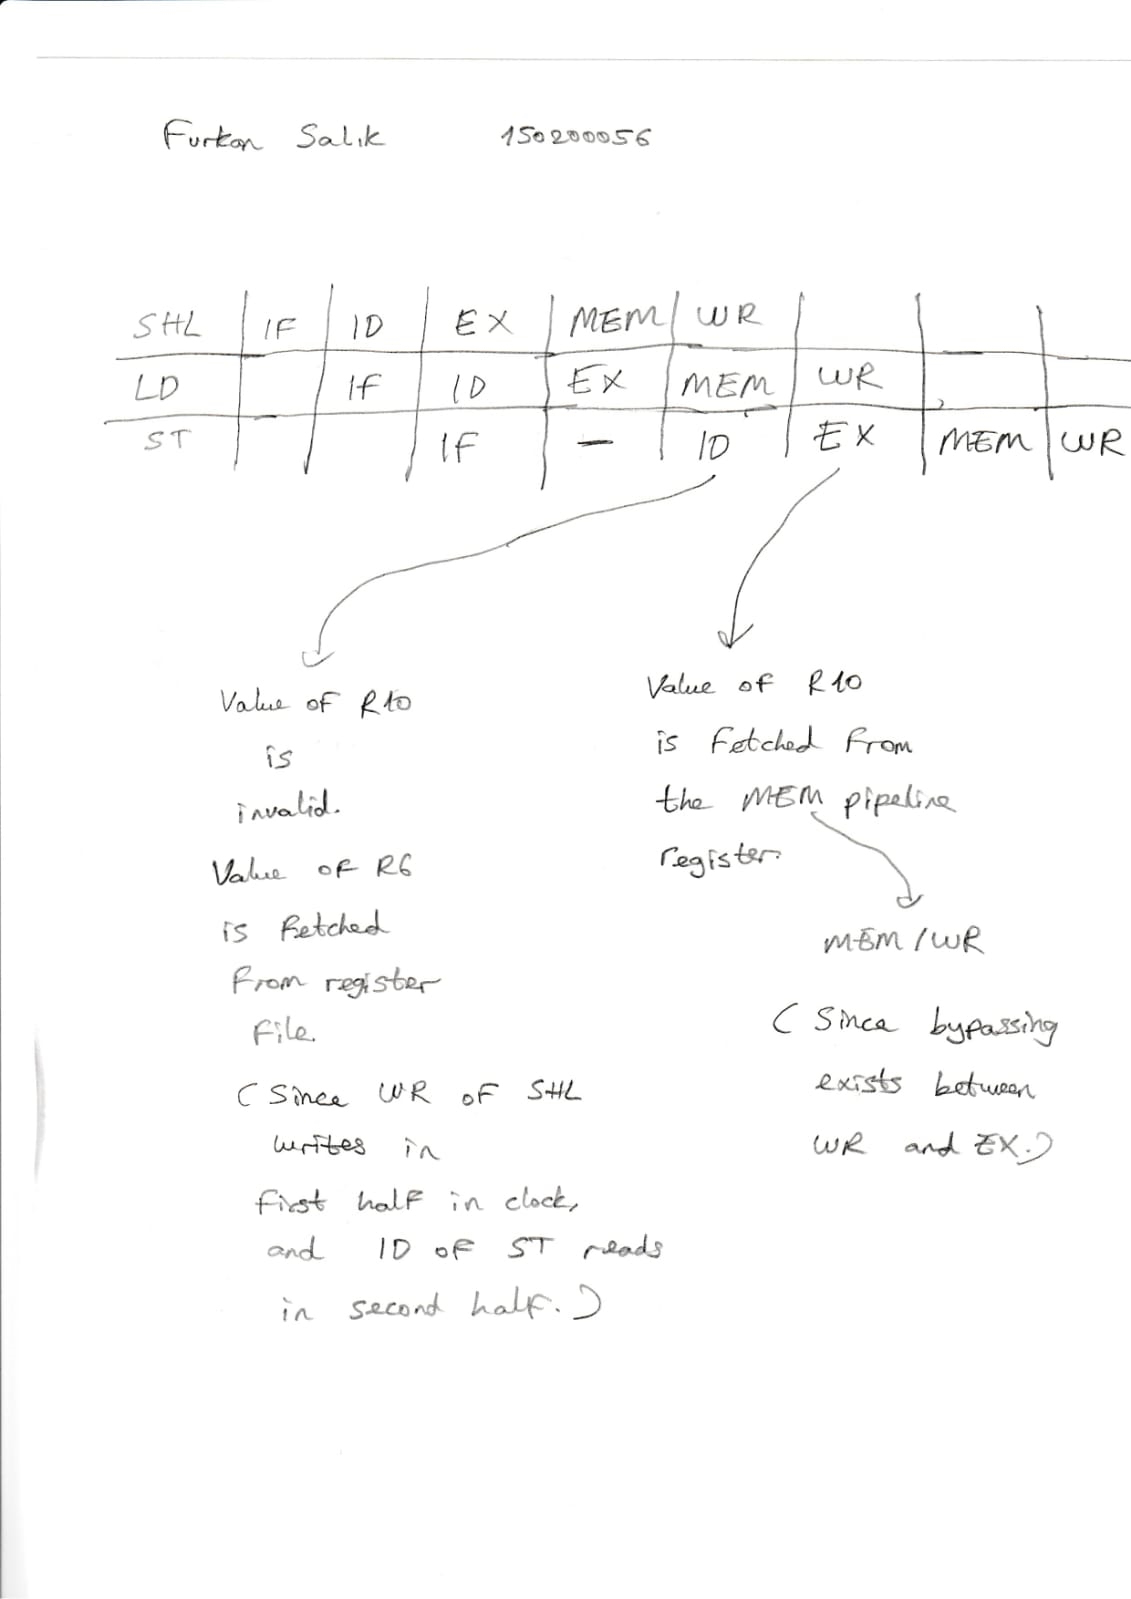 Furkan Salık 150200056
SHL IF ID EX MEM WR
LD IF ID EX MEM WR
ST IF — ID EX MEM WR
Value of R10
is
invalid.
Value of R6
is fetched
from register
file.
(Since WR of SHL
writes in
first half in clock,
and ID of ST reads
in second half.)
Value of R10
is fetched from
the MEM pipeline
register.
MEM/WR
(Since bypassing
exists between
WR and EX.)